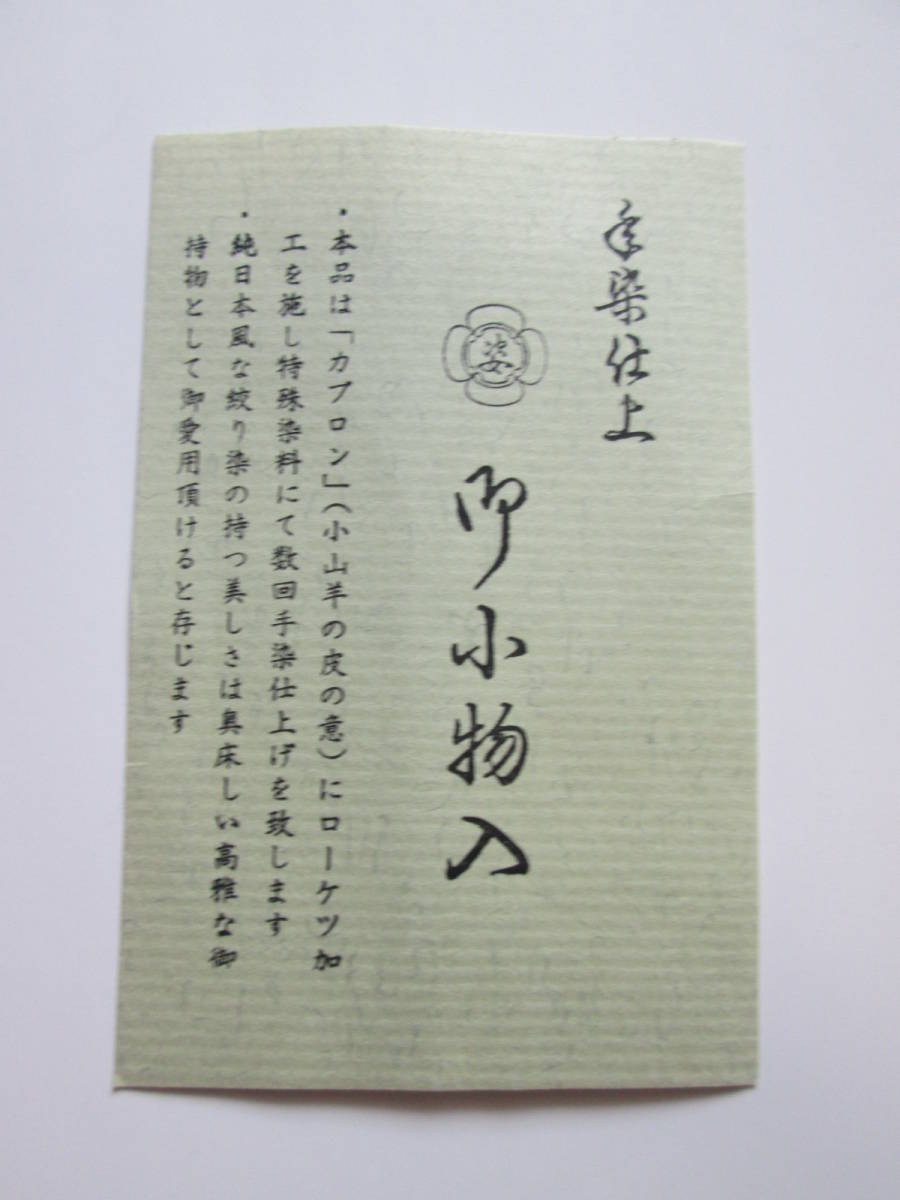 手染仕上
姿
御小物入
・本品は「カブロン」（小山羊の皮の意）にローケツ加
工を施し特殊染料にて数回手染仕上げを致します
・純日本風な絞り染の持つ美しさは奥床しい高雅な御
持物として御愛用頂けると存じます